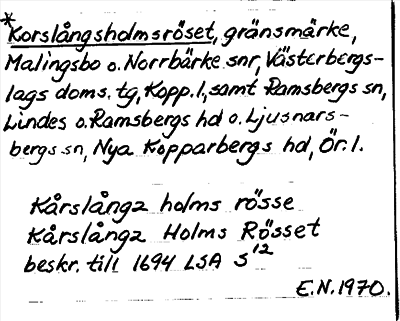 *Korslångsholmsröset, gränsmärke,
Malingsbo o. Norrbärke snr, Västerbergs-
lags doms. tg, Kopp. l, samt Ramsbergs sn,
Lindes o. Ramsbergs hd o. Ljusnars-
bergs sn, Nya Kopparbergs hd, Ör. l.
Kårslånga holms rösse
Kårslånga Holms Rösset
beskr. till 1694 LSA S¹²
E.N. 1970.